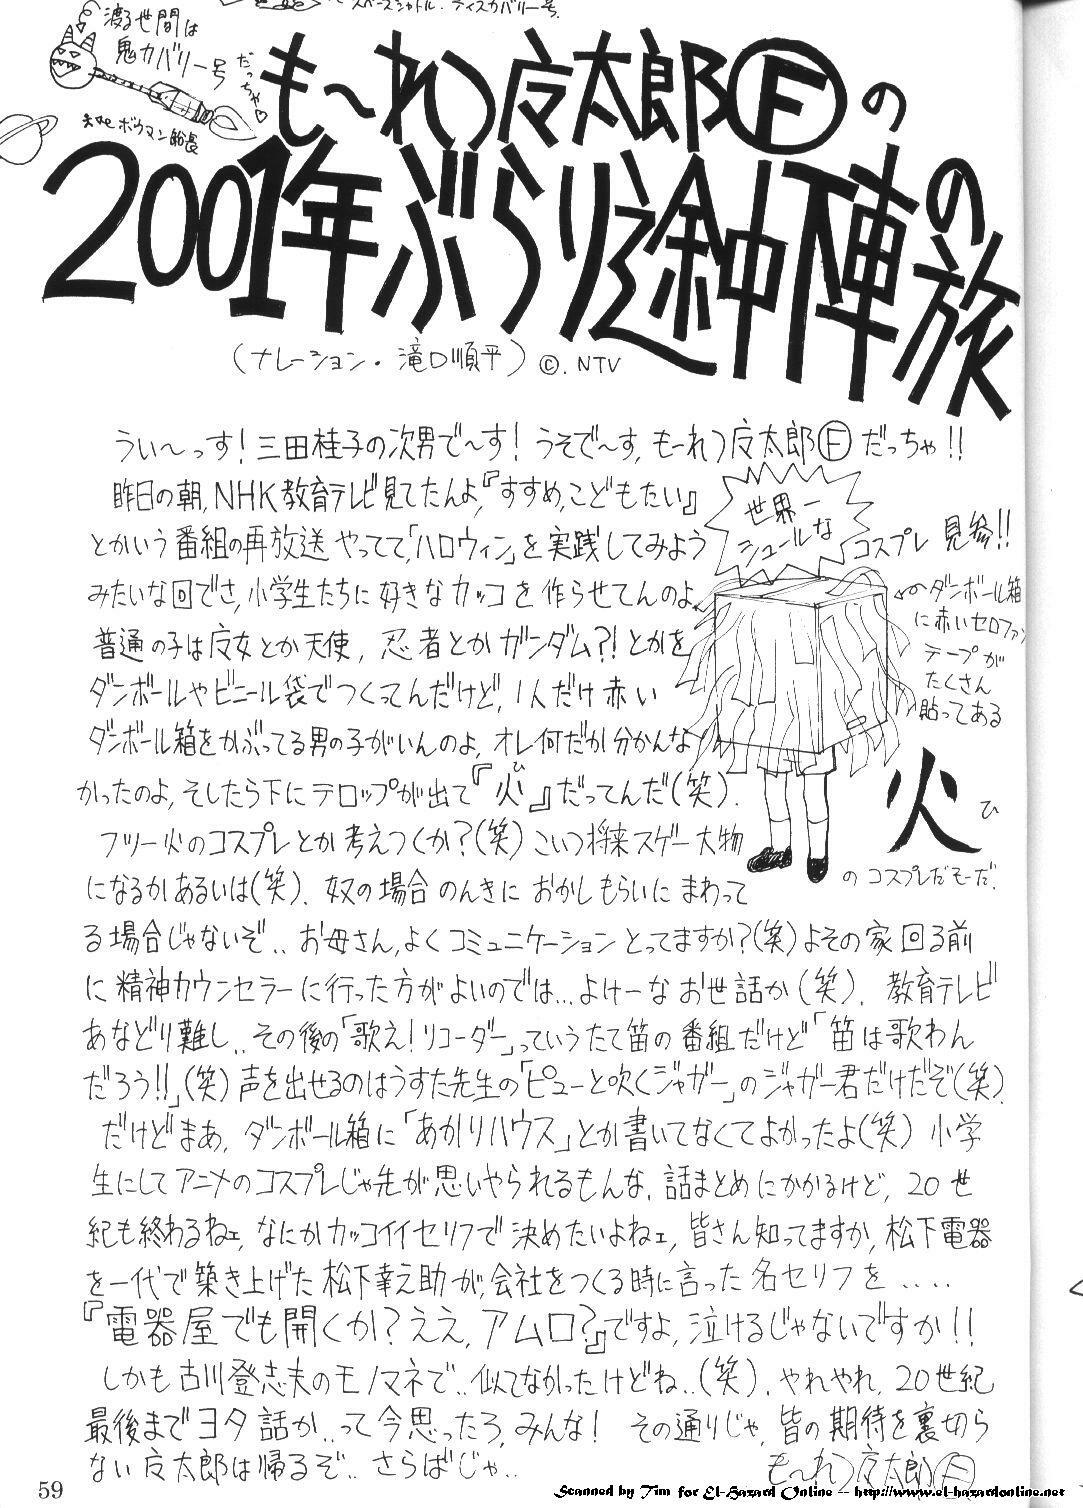 スペースシャトル・ディスカバリー号.
渡る世間は
鬼カバリー号
だっちゃ♡
ボウマン船長
も〜れつ太郎Ⓕの
2001年ぶらり途中下車の旅
（ナレーション・滝口順平）©.NTV
うぃ〜っす！三田佳子の次男で〜す！うそで〜す，も〜れつ太郎Ⓕだっちゃ!!
昨日の朝，NHK教育テレビ見てたんよ，『すすめ，こどもたい』
とかいう番組の再放送やってて，「ハロウィン」を実践してみよう
みたいな回でさ，小学生たちに好きなカッコを作らせてんのよ，
普通の子は魔女とか天使，忍者とかガンダム?!とかを
ダンボールやビニール袋でつくってんだけど，1人だけ赤い
ダンボール箱をかぶってる男の子がいんのよ，オレ何だか分かんな
かったのよ，そしたら下にテロップが出て『火』だってんだ(笑)．
ひ
フツー火のコスプレとか考えつくか？(笑)こいつ将来スゲー大物
になるかあるいは(笑)．奴の場合のんきにおかしもらいにまわって
る場合じゃないぞ‥お母さん，よくコミュニケーションとってますか？(笑)よその家回る前
に精神カウンセラーに行った方がよいのでは…よけーなお世話か(笑)．教育テレビ
あなどり難し‥その後の「歌え！リコーダー」っていうたて笛の番組だけど「笛は歌わん
だろう!!」(笑)声を出せるのはうすた先生の「ピューと吹くジャガー」のジャガー君だけだぞ(笑)．
だけどまあ，ダンボール箱に「あかりハウス」とか書いてなくてよかったよ(笑)小学
生にしてアニメのコスプレじゃ先が思いやられるもんな，話まとめにかかるけど，20世
紀も終わるねェ，なにかカッコイイセリフで決めたいよねェ，皆さん知ってますか，松下電器
を一代で築き上げた松下幸之助が，会社をつくる時に言った名セリフを‥‥
『電器屋でも開くか？ええ，アムロ？』ですよ，泣けるじゃないですか!!
しかも古川登志夫のモノマネで‥似てなかったけどね‥(笑)．やれやれ，20世紀
最後までヨタ話か‥って今思ったろ，みんな！その通りじゃ，皆の期待を裏切ら
ない太郎は帰るぞ‥さらばじゃ‥
も〜れつ太郎Ⓕ
世界一
シュールな
コスプレ見参!!
←ダンボール箱
に赤いセロファン
テープが
たくさん
貼ってある
火
ひ
のコスプレだそーだ．
59
Scanned by Tim for El-Hazard Online -- http://www.el-hazardonline.net